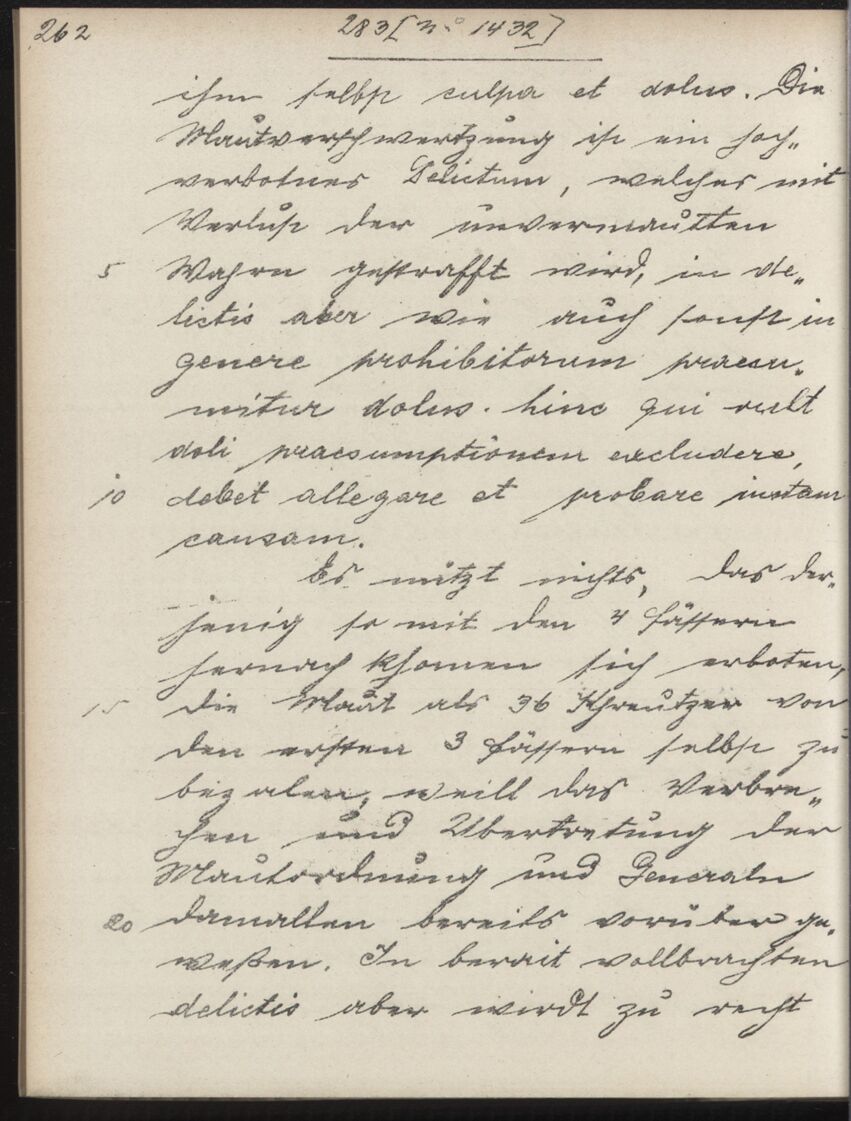 262
283 [No 1432]
ihm selbst culpa et dolus. Die
Mautverschwertzung ist ein hoch„
verbotnes Delictum, welches mit
Verlust der unvermautten
5 Wahrn gestrafft wird, in de„
lictis aber wie auch sonst in
genere prohibitorum praesu„
mitur dolus. hinc qui vult
doli praesumptionem excludere,
10 debet allegare et probare iustam
causam.
Es nützt nichts, das der„
jenig so mit den 4 fässern
hernach khomen sich erboten,
15 die Maut als 36 Khreutzer von
den ersten 3 fässern selbst zu
bezalen, weill das Verbre„
chen und Ubertretung der
Mautordnung und Generaln
20 damallen bereits vorüber ge„
weßen. In berait vollbrachten
delictis aber wirdt zu recht